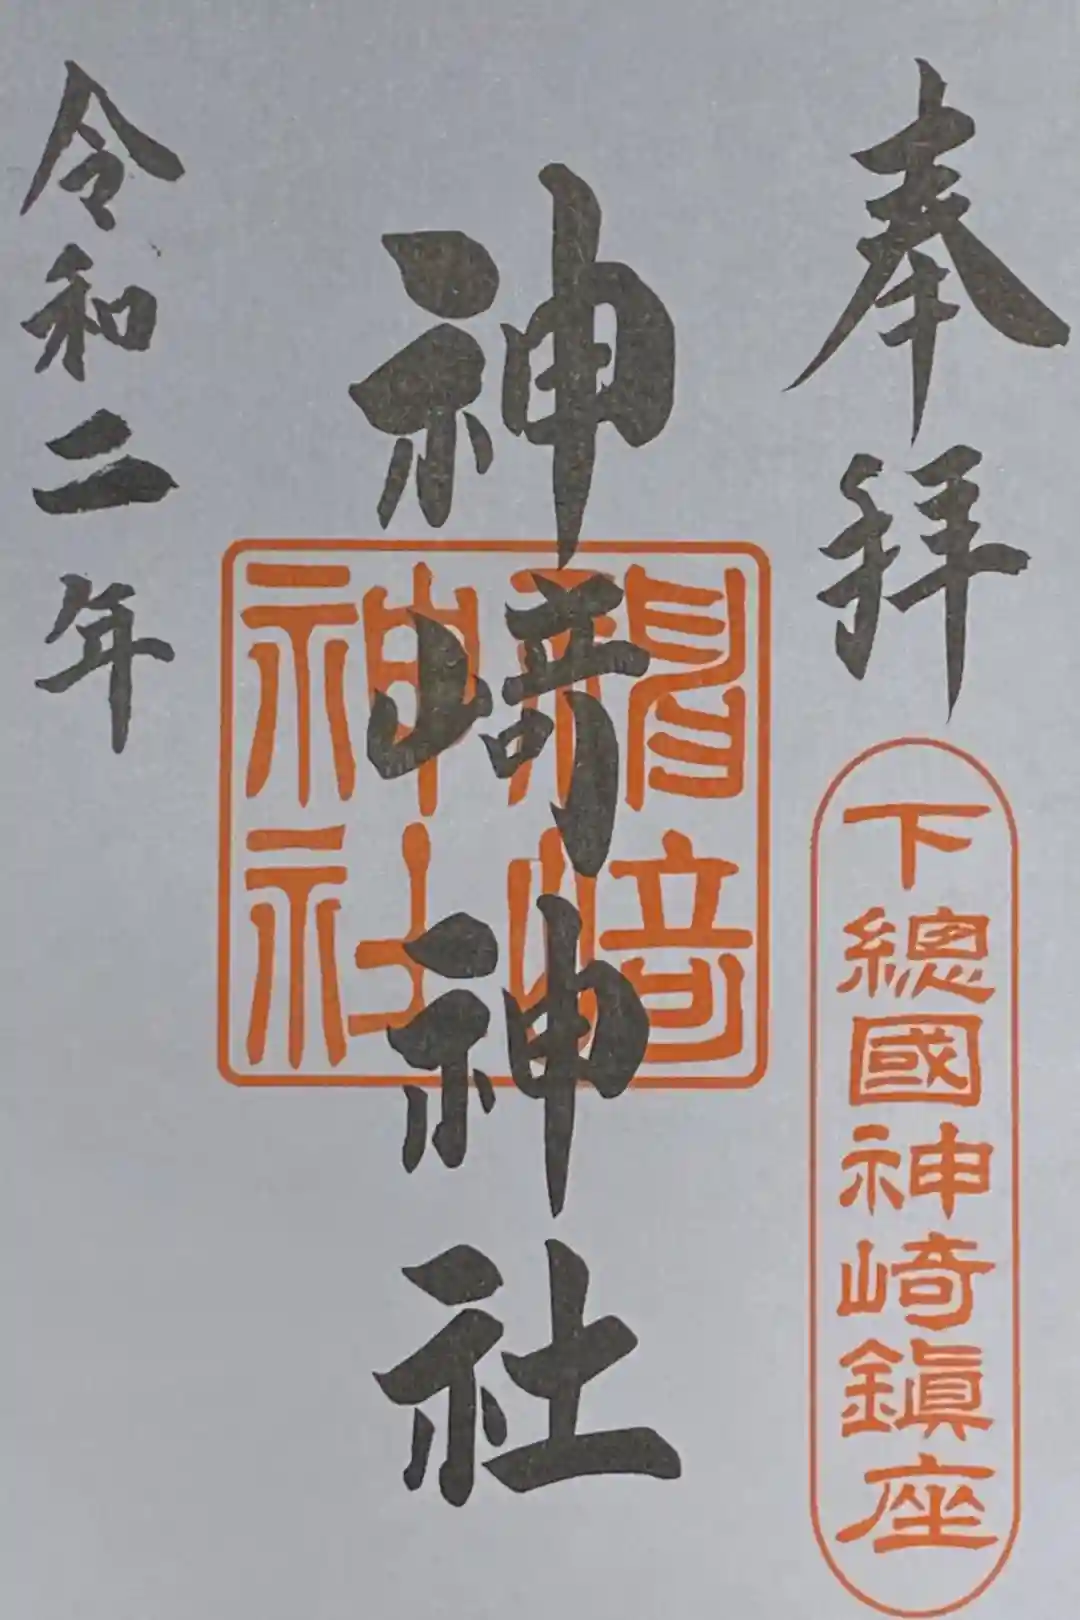 奉拝
下總國神崎鎭座
神崎神社
神崎
神社
令和二年